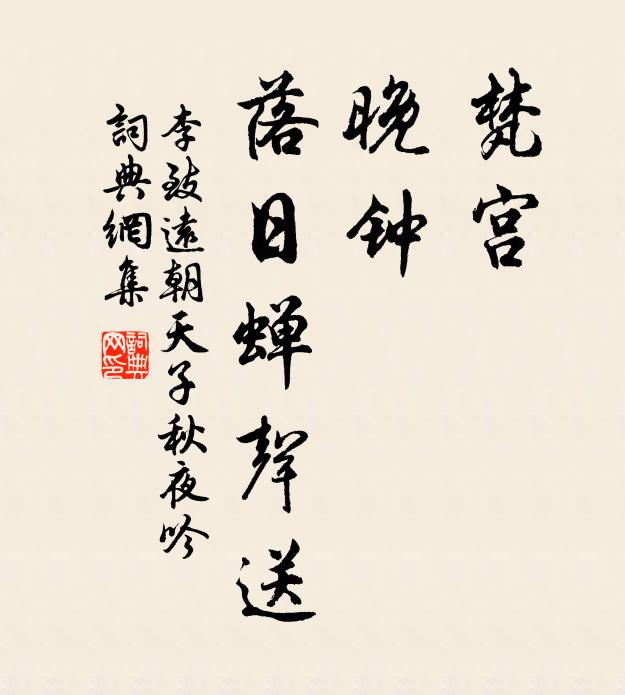 梵宫
晚钟
落日蝉声送
李致遠朝天子秋夜吟
詞典網集
詞典网印